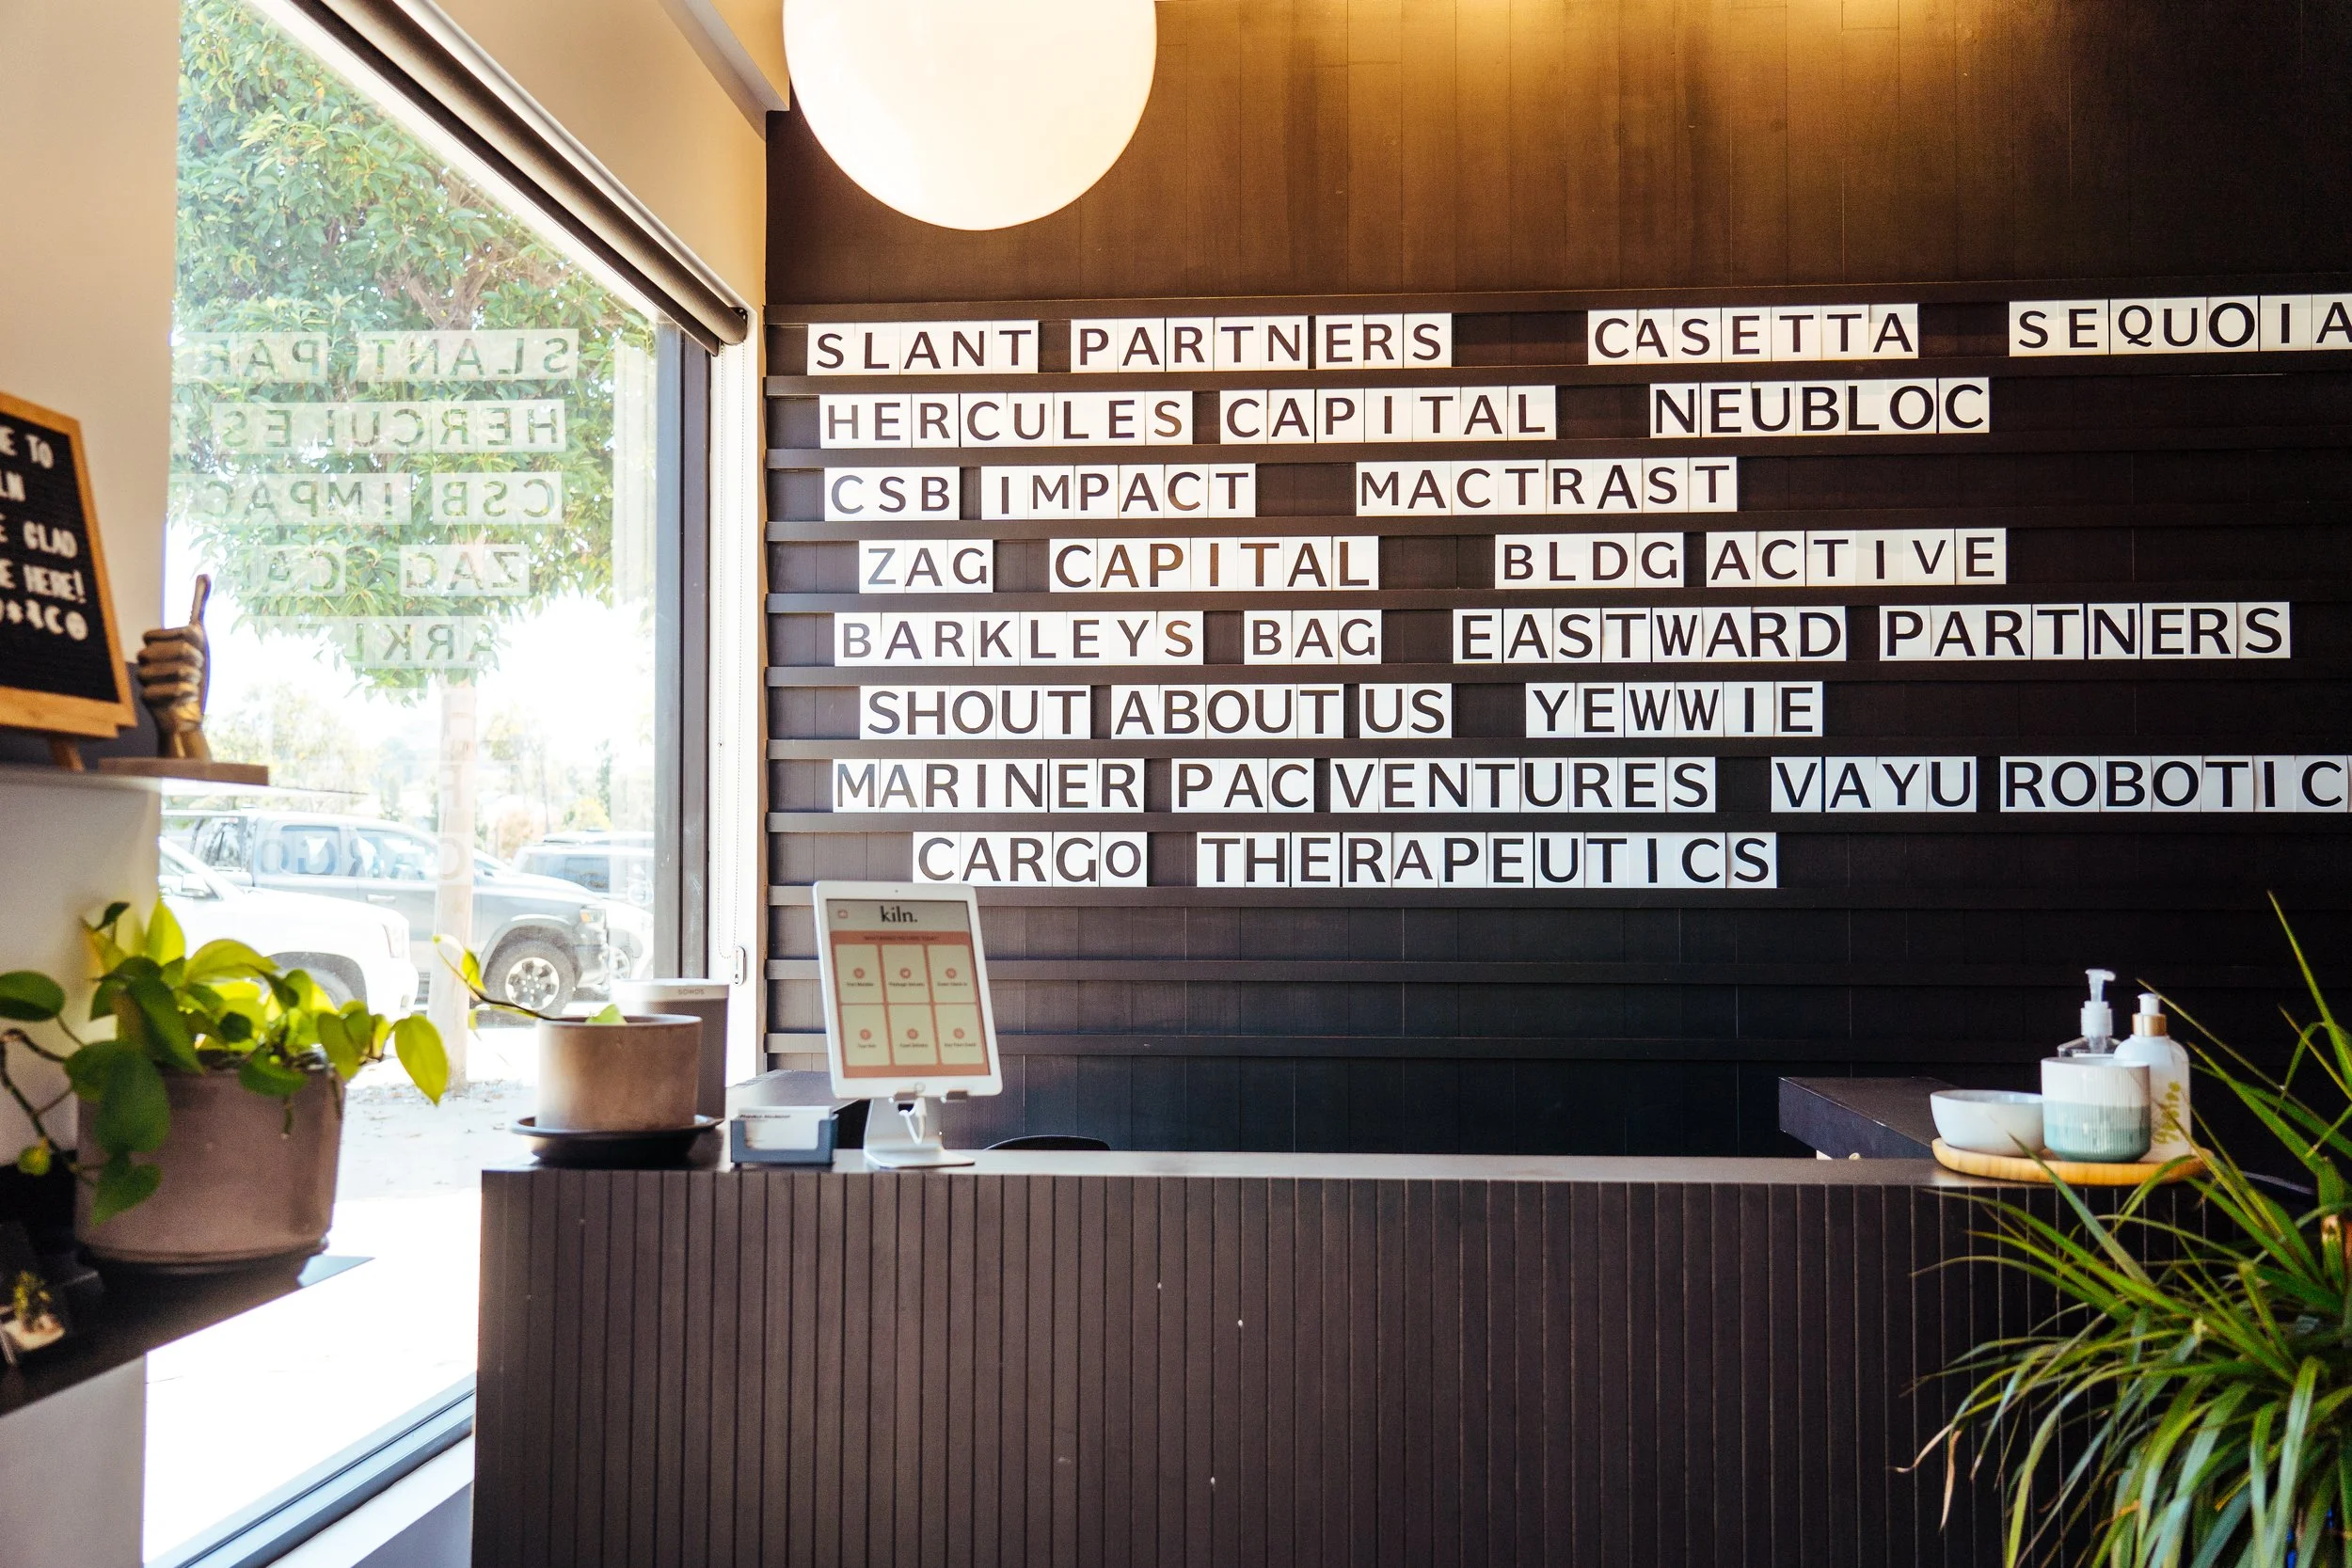 SLANT PARTNERS CASETTA SEQUOIA
HERCULES CAPITAL NEUBLOC
CSB IMPACT MACTRAST
ZAG CAPITAL BLDG ACTIVE
BARKLEYS BAG EASTWARD PARTNERS
SHOUT ABOUT US YEWWIE
MARINER PAC VENTURES VAYU ROBOTIC
CARGO THERAPEUTICS
TO
GLAD
HERE!
kiln.
SONOS